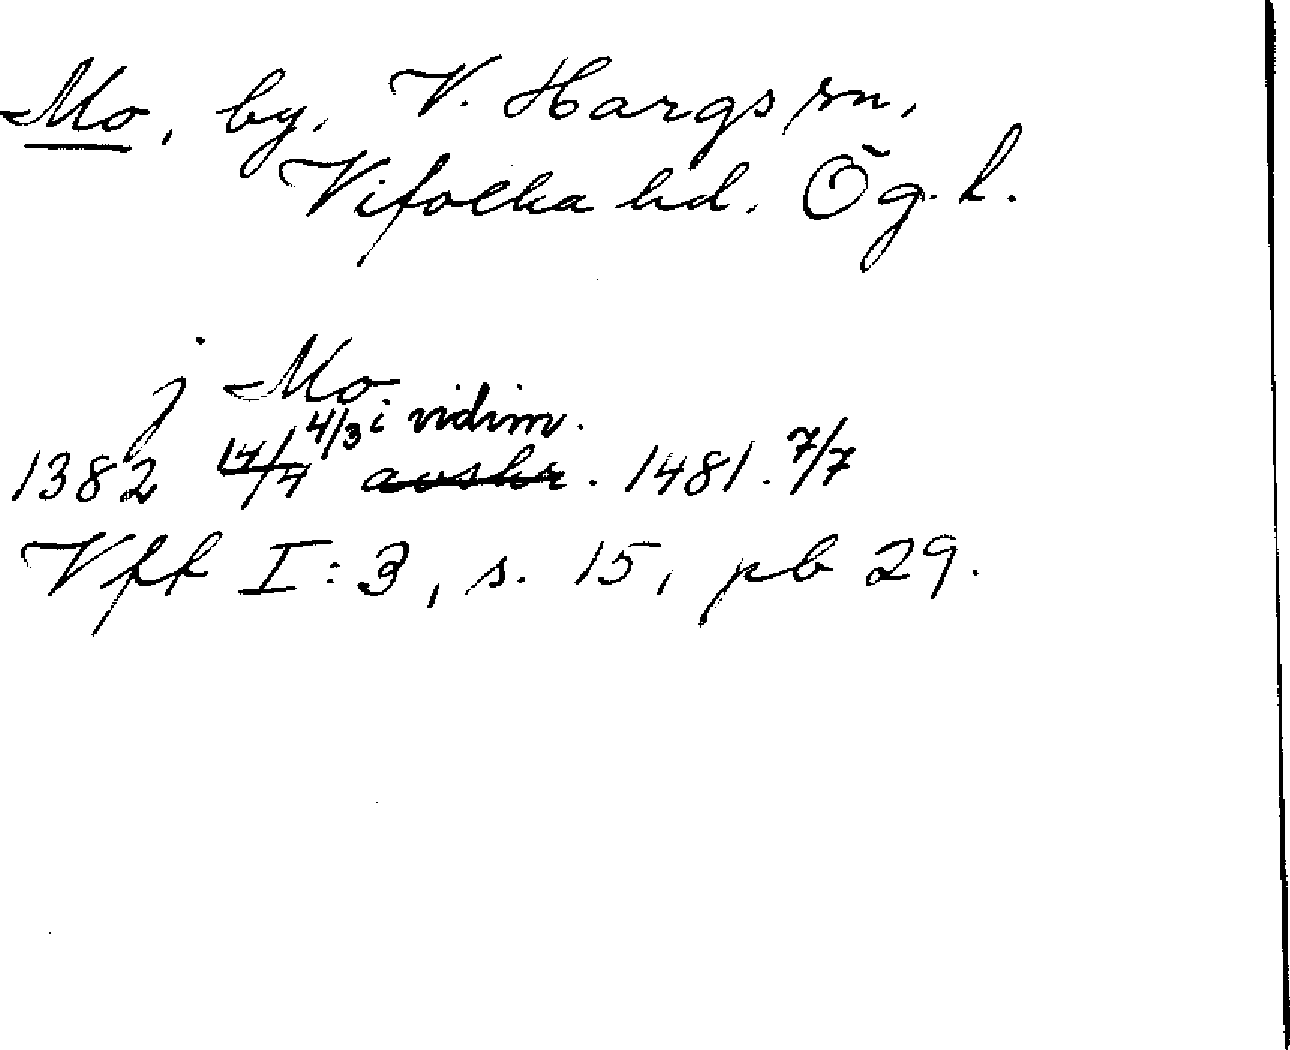 Mo, by, V. Hargs sn,
Vifolka hd. Ög. l.
j Mo
4/3 i vidim.
1382 14/4 avskr. 1481. 7/7
Vff I:3, s. 15, pb 29.